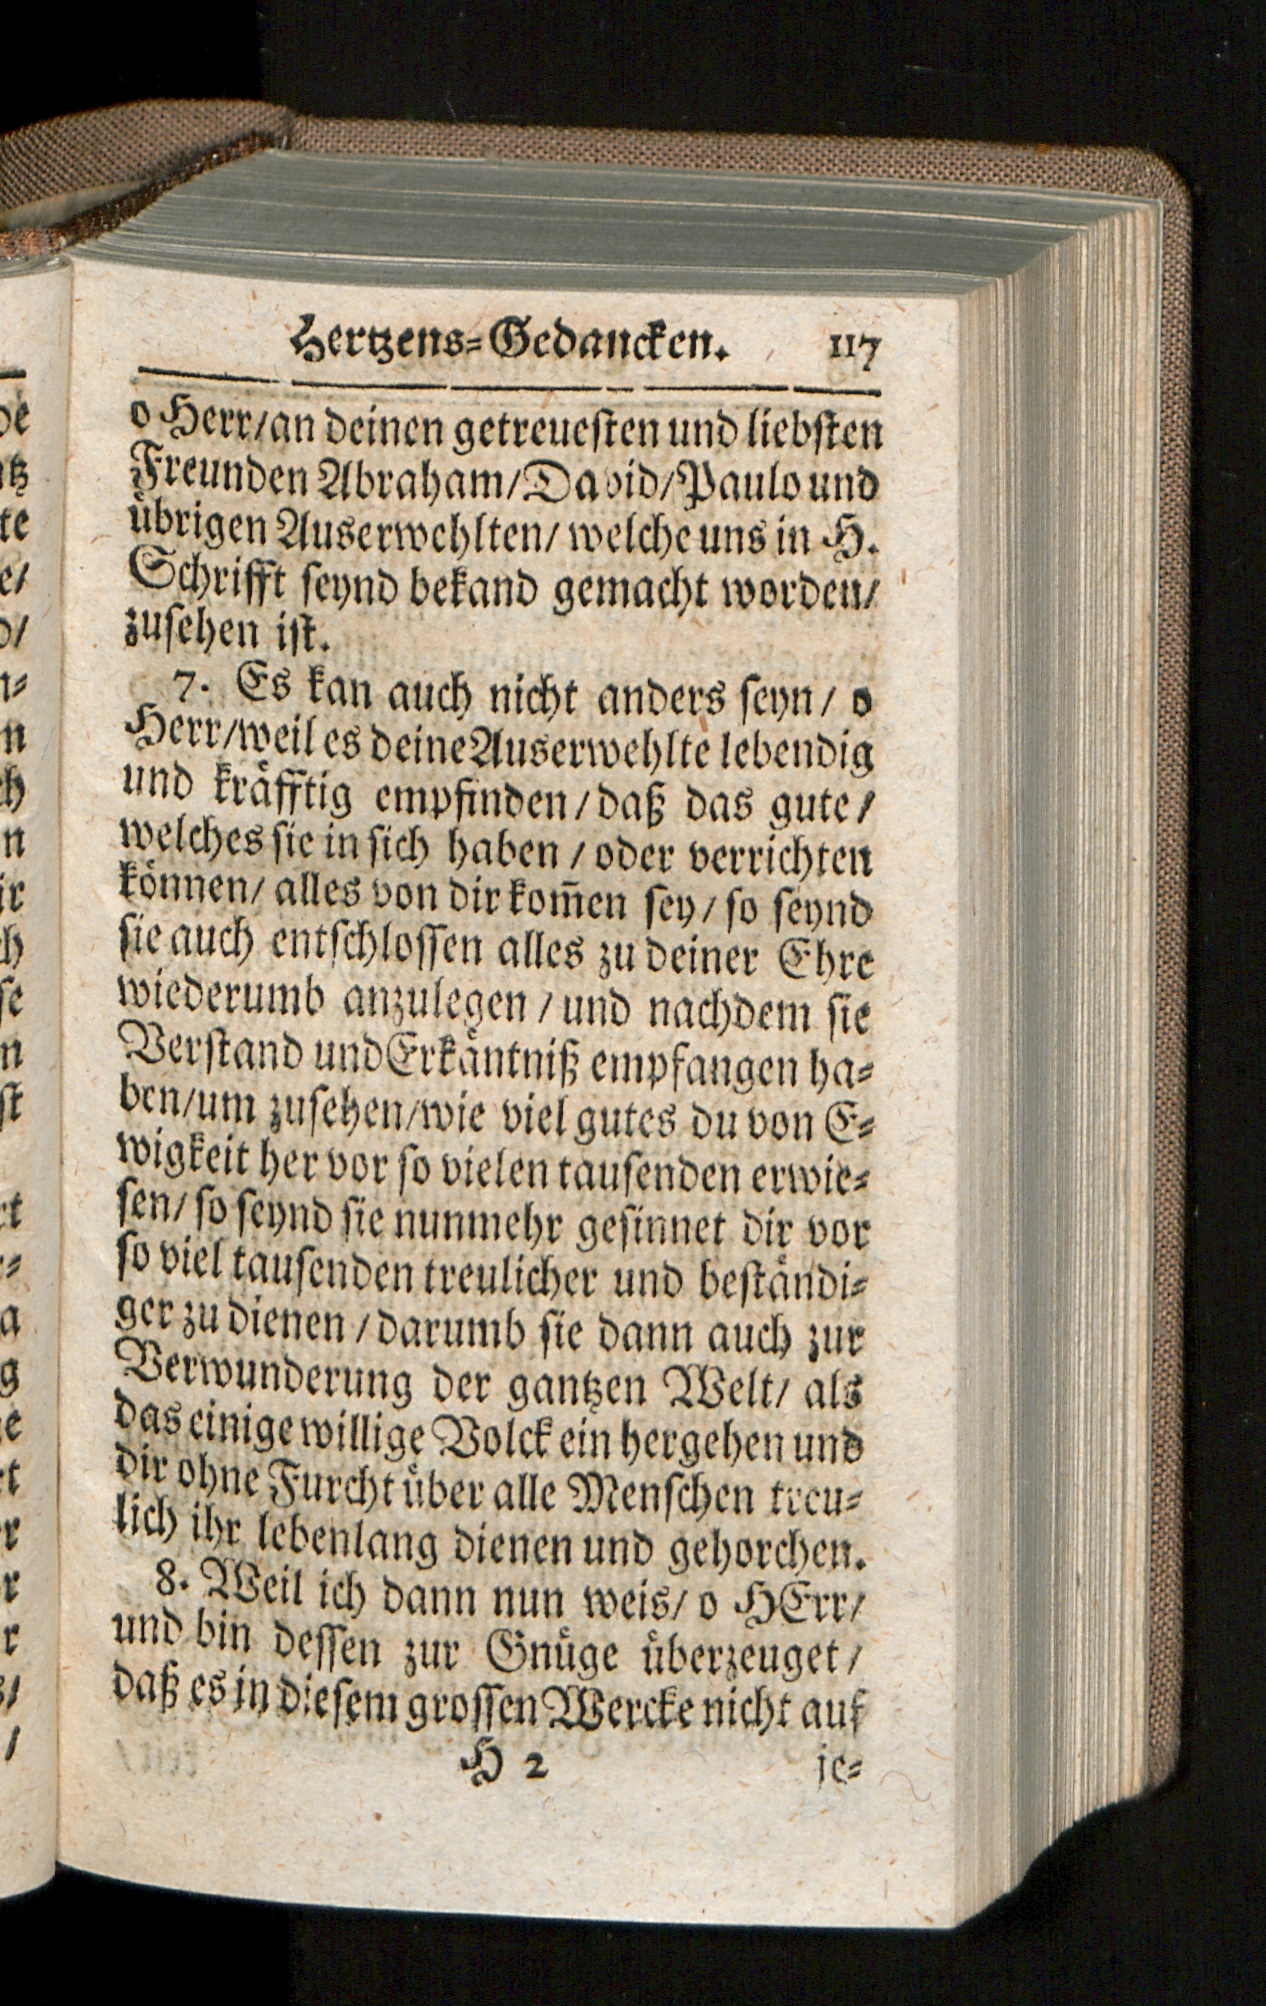 Hertzens-Gedancken. 117
o Herr/an deinen getreuesten und liebsten
Freunden Abraham/David/Paulo und
übrigen Auserwehlten/ welche uns in H.
Schrifft seynd bekand gemacht worden/
zusehen ist.
7. Es kan auch nicht anders seyn/ o
Herr/weil es deine Auserwehlte lebendig
und kräfftig empfinden/daß das gute/
welches sie in sich haben/oder verrichten
können/ alles von dir kom̄en sey/so seynd
sie auch entschlossen alles zu deiner Ehre
wiederumb anzulegen/und nachdem sie
Verstand und Erkäntniß empfangen ha-
ben/um zusehen/wie viel gutes du von E-
wigkeit her vor so vielen tausenden erwie-
sen/ so seynd sie nunmehr gesinnet dir vor
so viel tausenden treulicher und beständi-
ger zu dienen/darumb sie dann auch zur
Verwunderung der gantzen Welt/ als
das einige willige Volck ein hergehen und
dir ohne Furcht über alle Menschen treu-
lich ihr lebenlang dienen und gehorchen.
8. Weil ich dann nun weis/ o HErr/
und bin dessen zur Gnüge überzeuget/
daß es in diesem grossen Wercke nicht auf
H 2 je-